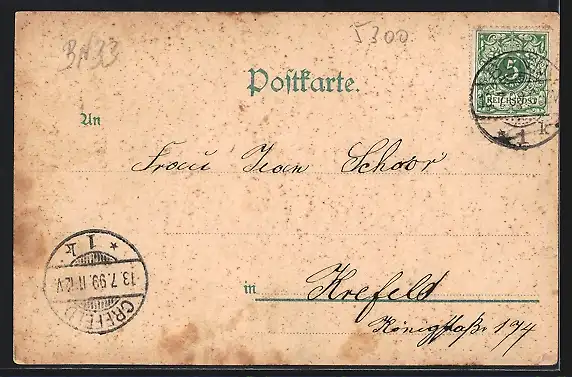 BN33
5300
Postkarte.
5
REICHSPOST
1 k
An
Frau Jean Schoor
* 1 k
13.7.99. 11-12.V
CREFELD
in
Krefeld
Königstraße 174